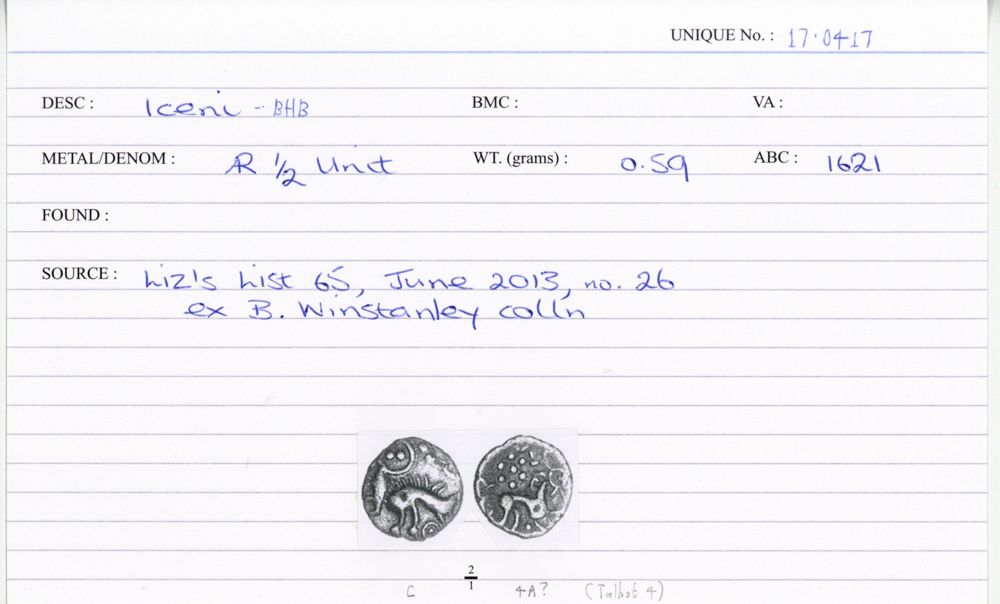 UNIQUE No. : 17.0417
DESC : Iceni - BHB BMC : VA :
METAL/DENOM : AR 1/2 Unit WT. (grams) : 0.59 ABC : 1621
FOUND :
SOURCE : Liz's List 65, June 2013, no. 26
ex B. Winstanley colln
2/1
C 4A? (Talbot 4)